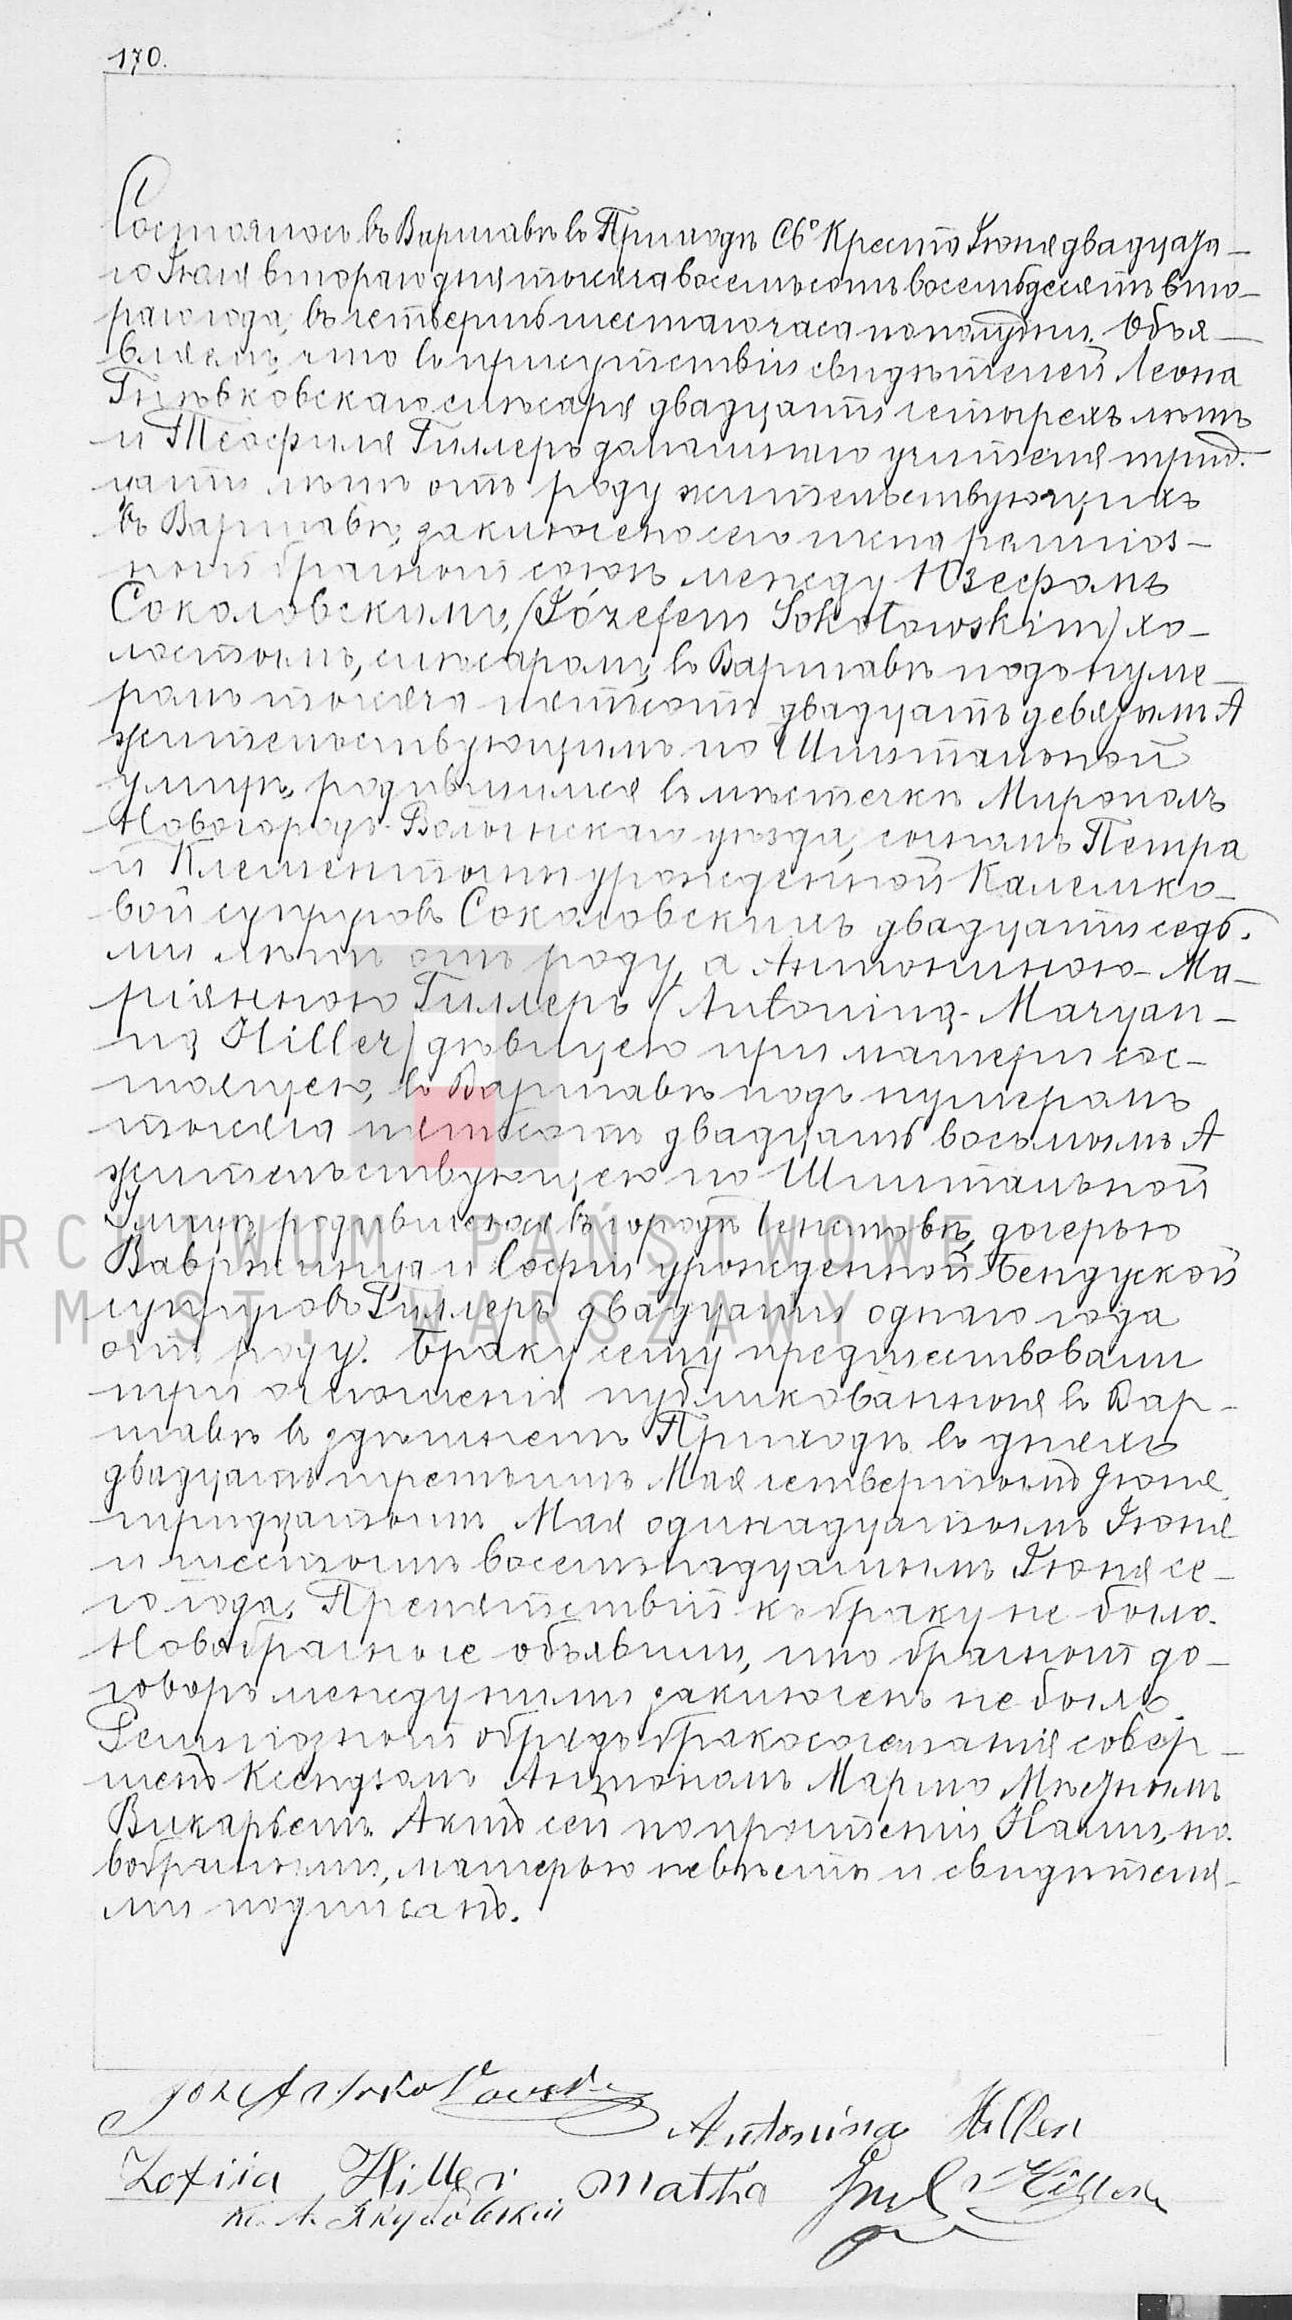 170.
Состоялось въ Варшавѣ въ Приходѣ Св° Креста Іюня двадцата-
го Іюля втораго дня тысяча восемьсотъ восемьдесятъ вто-
раго года, въ четверть шестаго часа пополудни. Объя-
вляемъ, что въ присутствіи свидѣтелей Леона
слѣсаря двадцати четырехъ лѣтъ
и Теофиля Гиллеръ домашняго учителя трид-
цати лѣтъ отъ роду жительствующихъ
въ Варшавѣ, заключенъ сего числа религіоз-
ный брачный союзъ между Юзефомъ
Соколовскимъ, (Józefem Sokołowskim) хо-
лостымъ, слѣсаремъ, въ Варшавѣ подъ нуме-
ромъ тысяча пятьсотъ двадцать девятымъ А
жительствующимъ по Шпитальной
улицѣ, родившимся въ мѣстечкѣ Мирополъ
Новогородъ-Волынскаго уѣзда, сыномъ Петра
и Клементыны урожденной Калемко-
вой супруговъ Соколовскихъ двадцати седь-
ми лѣтъ отъ роду, а Антониною-Ма-
ріянною Гиллеръ (Antoniną-Maryan-
ną Hiller) дѣвицею при матери сос-
тоящею, въ Варшавѣ подъ нумеромъ
тысяча пятьсотъ двадцать восьмымъ А
жительствующею по Шпитальной
Улицѣ, родившеюся въ городѣ Ченстовѣ, дочерью
Вавржинца и Софіи урожденной Бендуской
супруговъ Гиллеръ двадцати одного года
отъ роду. Браку сему предшествовали
три оглашенія публикованныя въ Вар-
шавѣ въ здѣшнемъ Приходѣ въ дняхъ
двадцать третьимъ Мая четвертымъ Іюня,
тридцатымъ Мая одинадцатымъ Іюня
и шестымъ восемьнадцатымъ Іюня се-
го года. Препятствій къ браку не было.
Новобрачные объявили, что брачный до-
говоръ между ними заключенъ не былъ.
Религіозный обрядъ бракосочетанія совер-
шенъ Ксендзомъ Антоніомъ Мѣстнымъ
Викарьемъ. Актъ сей по прочтеніи Нами, но-
вобрачными, матерью невѣсты и свидѣтеля-
ми подписанъ.
Józef Sokołowski
Antonina Hiller
Zofiia Hiller matka Hiller
Кс. А.
ARCHIWUM PAŃSTWOWE
M. ST. WARSZAWY